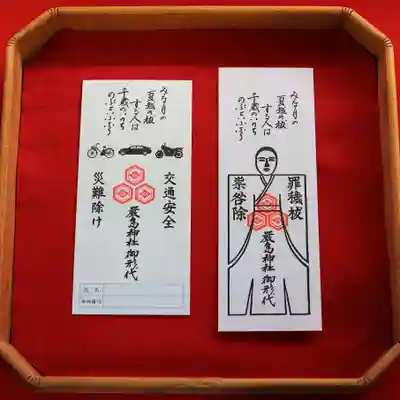 みな月の
夏越の祓
する人は
千歳のいのち
のぶといふなり
交通安全
厳島神社御形代
災難除け
氏名
みな月の
夏越の祓
する人は
千歳のいのち
のぶといふなり
罪穢祓
厳島神社御形代
祟咎除